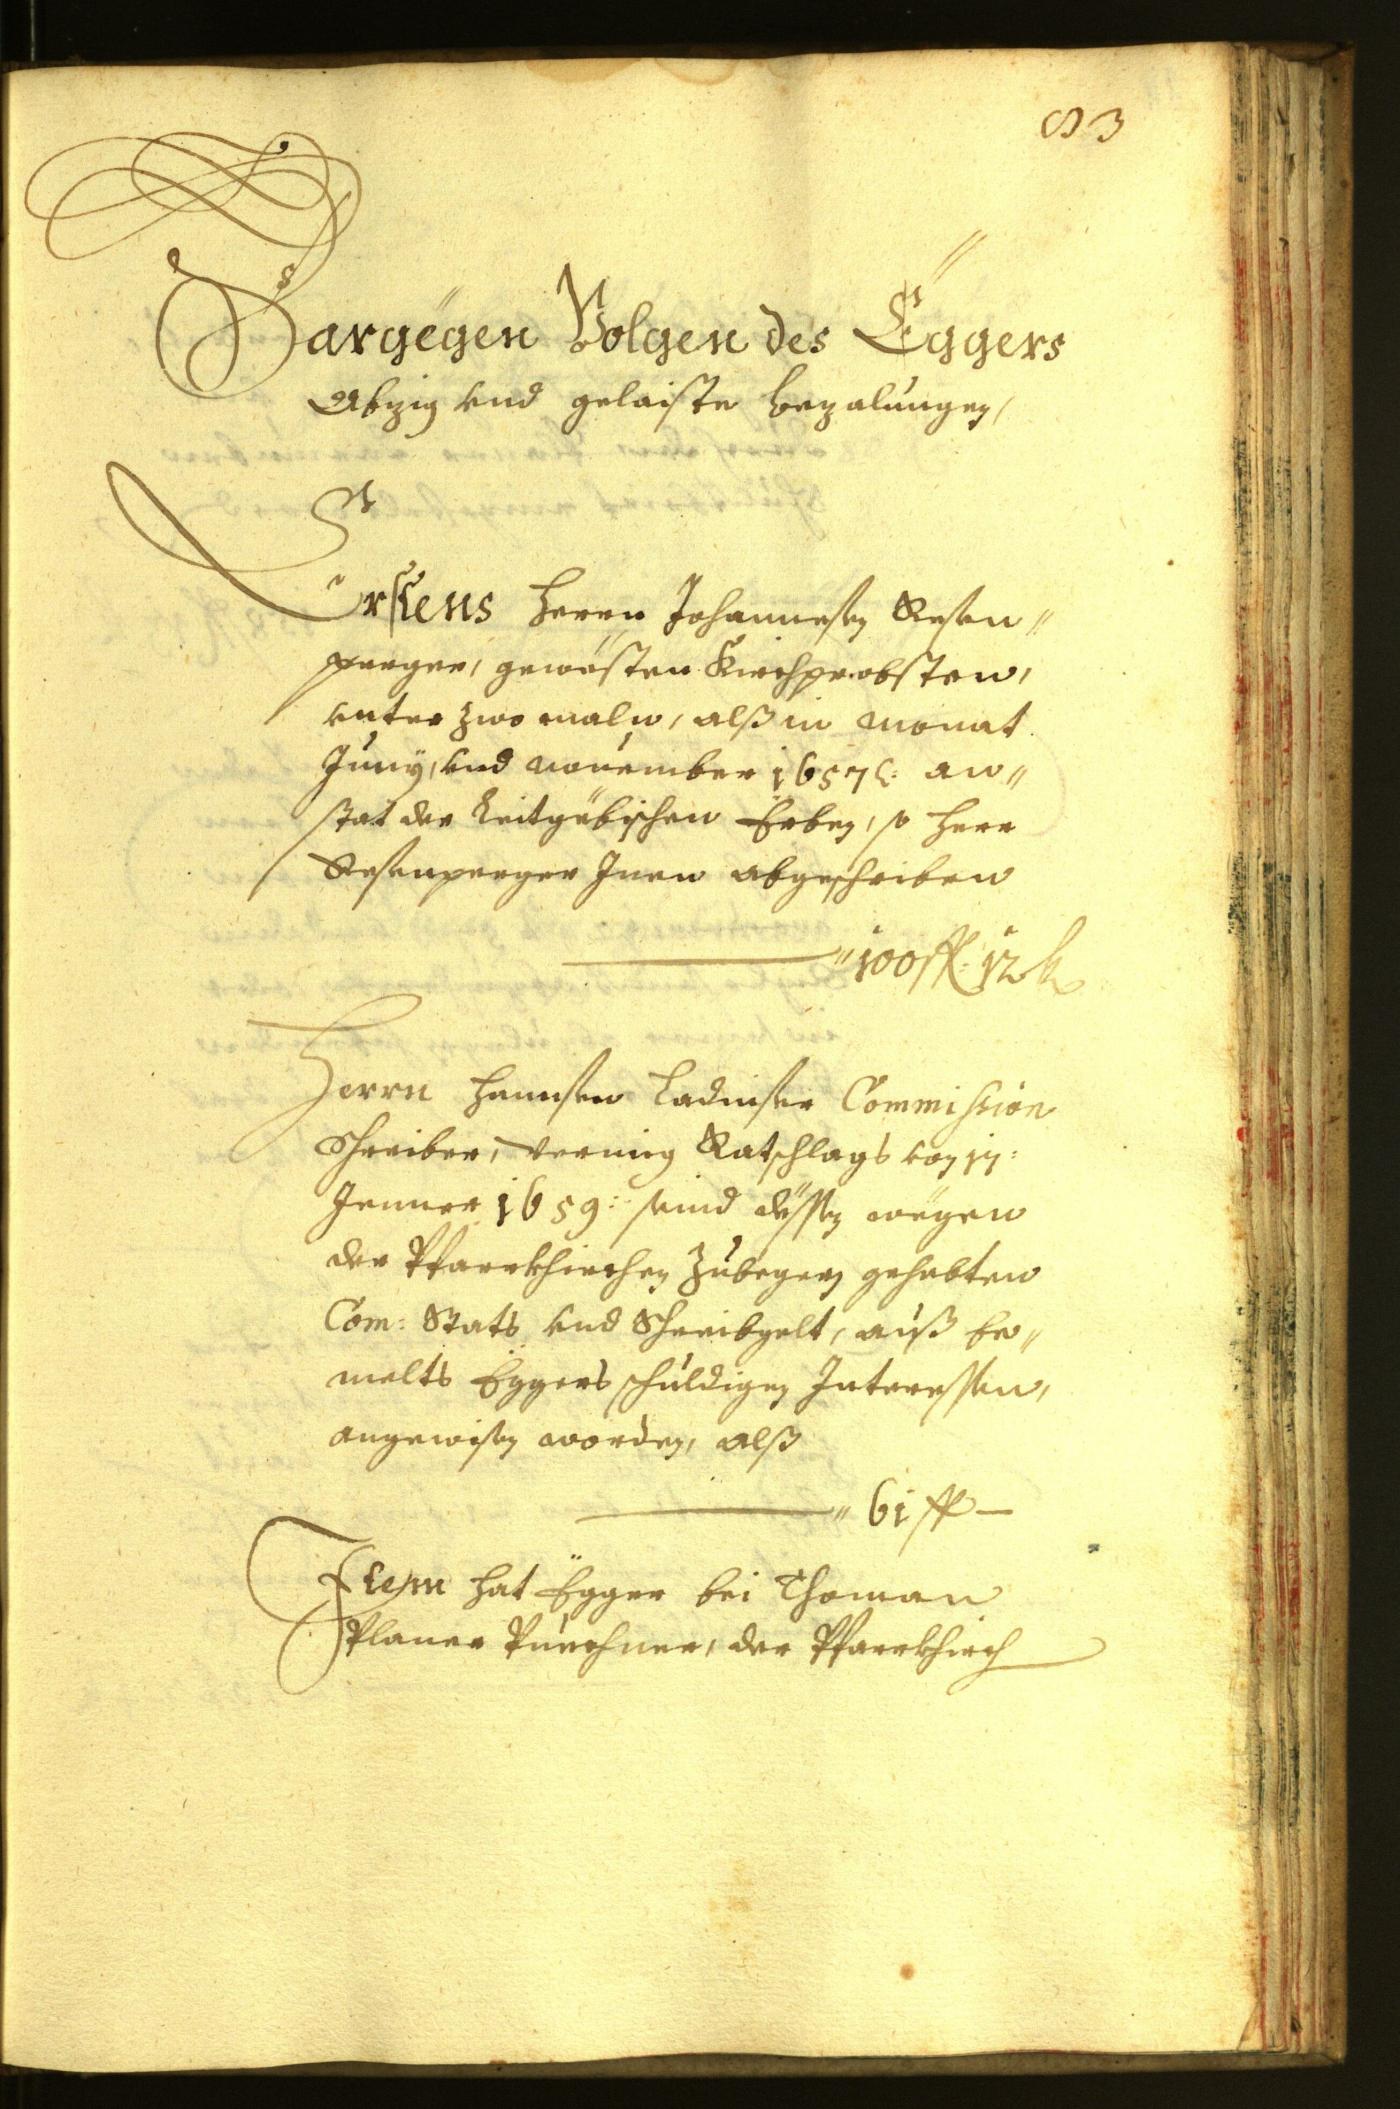 83
Dargëgen Volgen des Eggers
Abzig vnd gelaiste bezalungen,
Erstens Herrn Johannesen Resen¬
perger, gewösten Kirchprobsten,
vnter zwo maln, alß in Monat
Junÿ, vnd November 1657 an¬
stat der Leitgëbischen Erben, so Herr
Resenperger Inen abgeschriben
100 fl: 12 kr
Herrn Hannsen Ladinser Commission
Schreiber, vermig Ratschlags von 17:
Jenner 1659: seind dessen wëgen
der Pfarrkhirchen Zubegern gehabten
Com: Stats vnd Schreibgelt, auß be¬
melts Eggers schuldigen Interessen,
angewisen worden, alß
61 fl —
Item hat Egger bei Thoman
Planer Purchner, der Pfarrkhirch